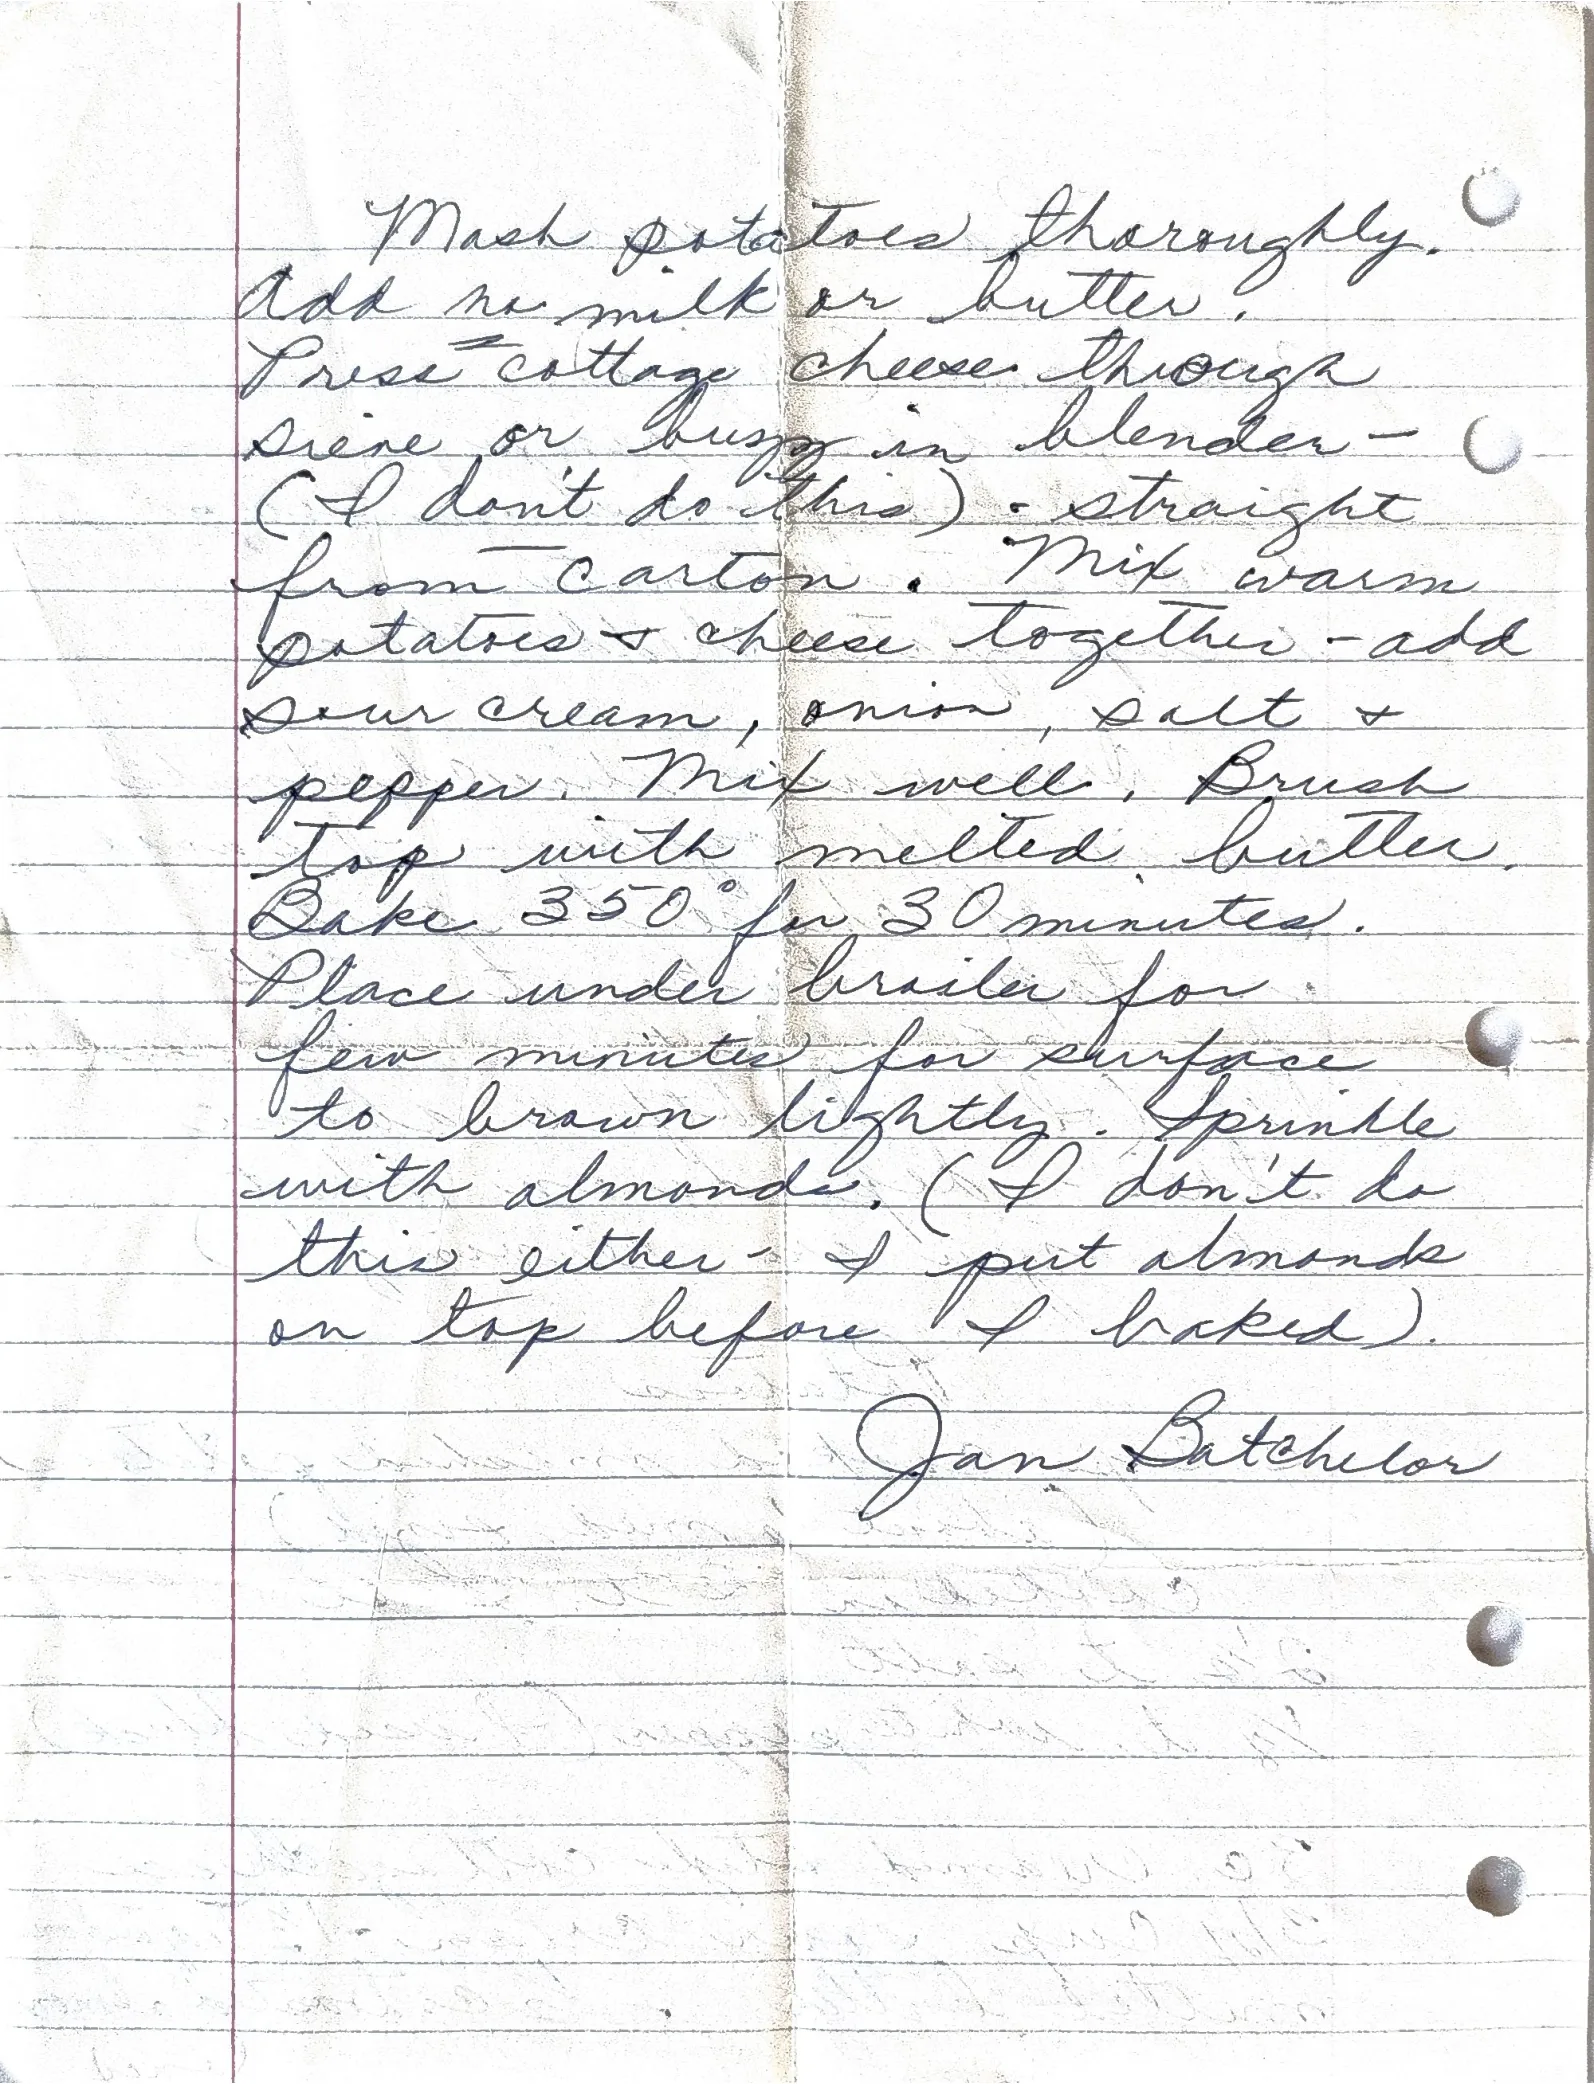 Mash potatoes thoroughly.
Add no milk or butter.
Press cottage cheese through
sieve or buzz in blender -
(I don't do this) - straight
from carton. Mix warm
potatoes & cheese together - add
sour cream, onion, salt &
pepper. Mix well. Brush
top with melted butter.
Bake 350° for 30 minutes.
Place under broiler for
few minutes for surface
to brown lightly. Sprinkle
with almonds. (I don't do
this either - I put almonds
on top before I baked).
Jan Batchelor